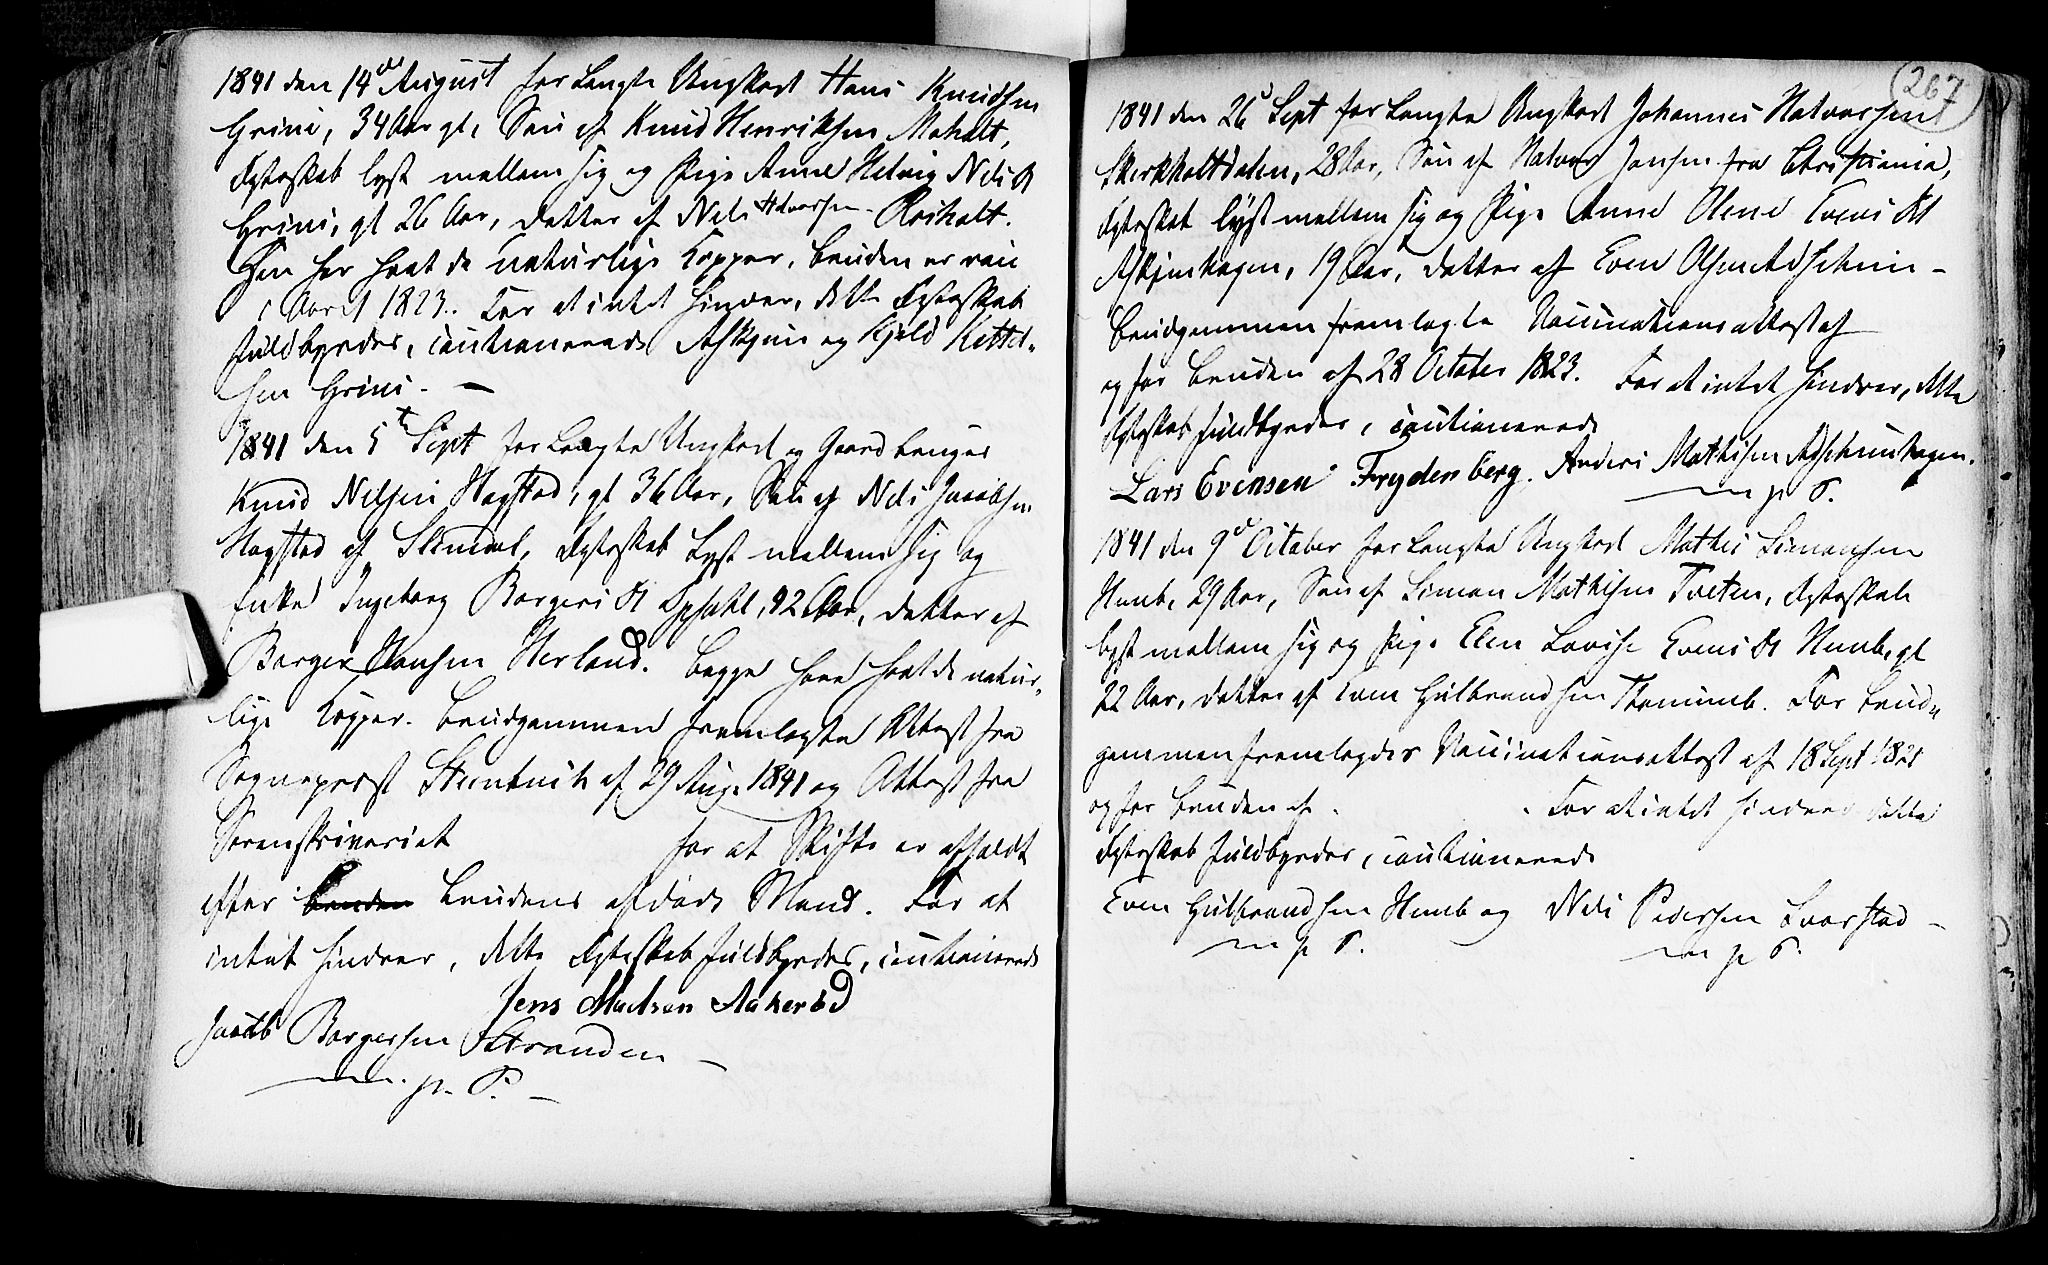 1841 den 14de August forlangte Ungkarl Hans Knudsen
Grini, 34 Aar gl, Søn af Knud Henriksen Moholt,
Egteskab lyst mellem sig og Pige Anne Helvig Nels D
Grini, gl 26 Aar, Datter af Nels Halvorsen Roiholt.
Han har havt de naturlige Kopper, Bruden er vac
i Aaret 1823. For at intet hindrer, dette Egteskab
fuldbyrdes, cautionerede Askjim og Kjeld Kittel-
sen Grini. —
1841 den 5t Sept forlangte Ungkarl og Gaardbruger
Knud Nelsen Hagstad, gl 36 Aar, Søn af Nels Jacobsen
Hagstad af Slemdal, Egteskab lyst mellem sig og
Enke Ingeborg Borgers D Opsahl, 42 Aar, Datter af
Borger Hansen Herland. Begge have havt de natur-
lige Kopper. Brudgommen fremlagte Attest fra
Sognepræst Steenbuch af 29 Aug. 1841 og Attest fra
Sorenskriveriet for at Skifte er afholdt
efter Brudens afdøde Mand. For at
intet hindrer, dette Egteskab fuldbyrdes, cautionerede
Jens Madsen Aakerød
Jacob Borgersen Stranden —
m. p. P. —
267
1841 den 26d Sept forlangte Ungkarl Johannes Halvorsen
Skirkholtdalen, 28 Aar, Søn af Halvor Jansen fra Christiania,
Egteskab lyst mellem sig og Pige Anne Olene Evens D
Askjimhagen, 19 Aar, Datter af Even Olsen Adschim –
Brudgommen fremlagte Vaccinationsattest af
og for Bruden af 28 October 1823. For at intet hindrer, dette
Egteskab fuldbyrdes, cautionerede
Lars Evensen Frydenberg. Anders Mathisen Adschimhagen.
m p P.
1841 den 9d October forlangte Ungkarl Mathis Simonsen
Numb, 29 Aar, Søn af Simon Mathisen Tveten, Egteskab
lyst mellem sig og Pige Elen Lovise Evens D Numb, gl
22 Aar, Datter af Even Gulbrandsen Numb. For Brud-
gommen fremlagdes Vaccinationsattest af 18 Sept 1821
og for Bruden af . . For at intet hindrer dette
Egteskab fuldbyrdes, cautionerede
Even Gulbrandsen Numb og Nels Pedersen Svarstad –
m p P. m p P.